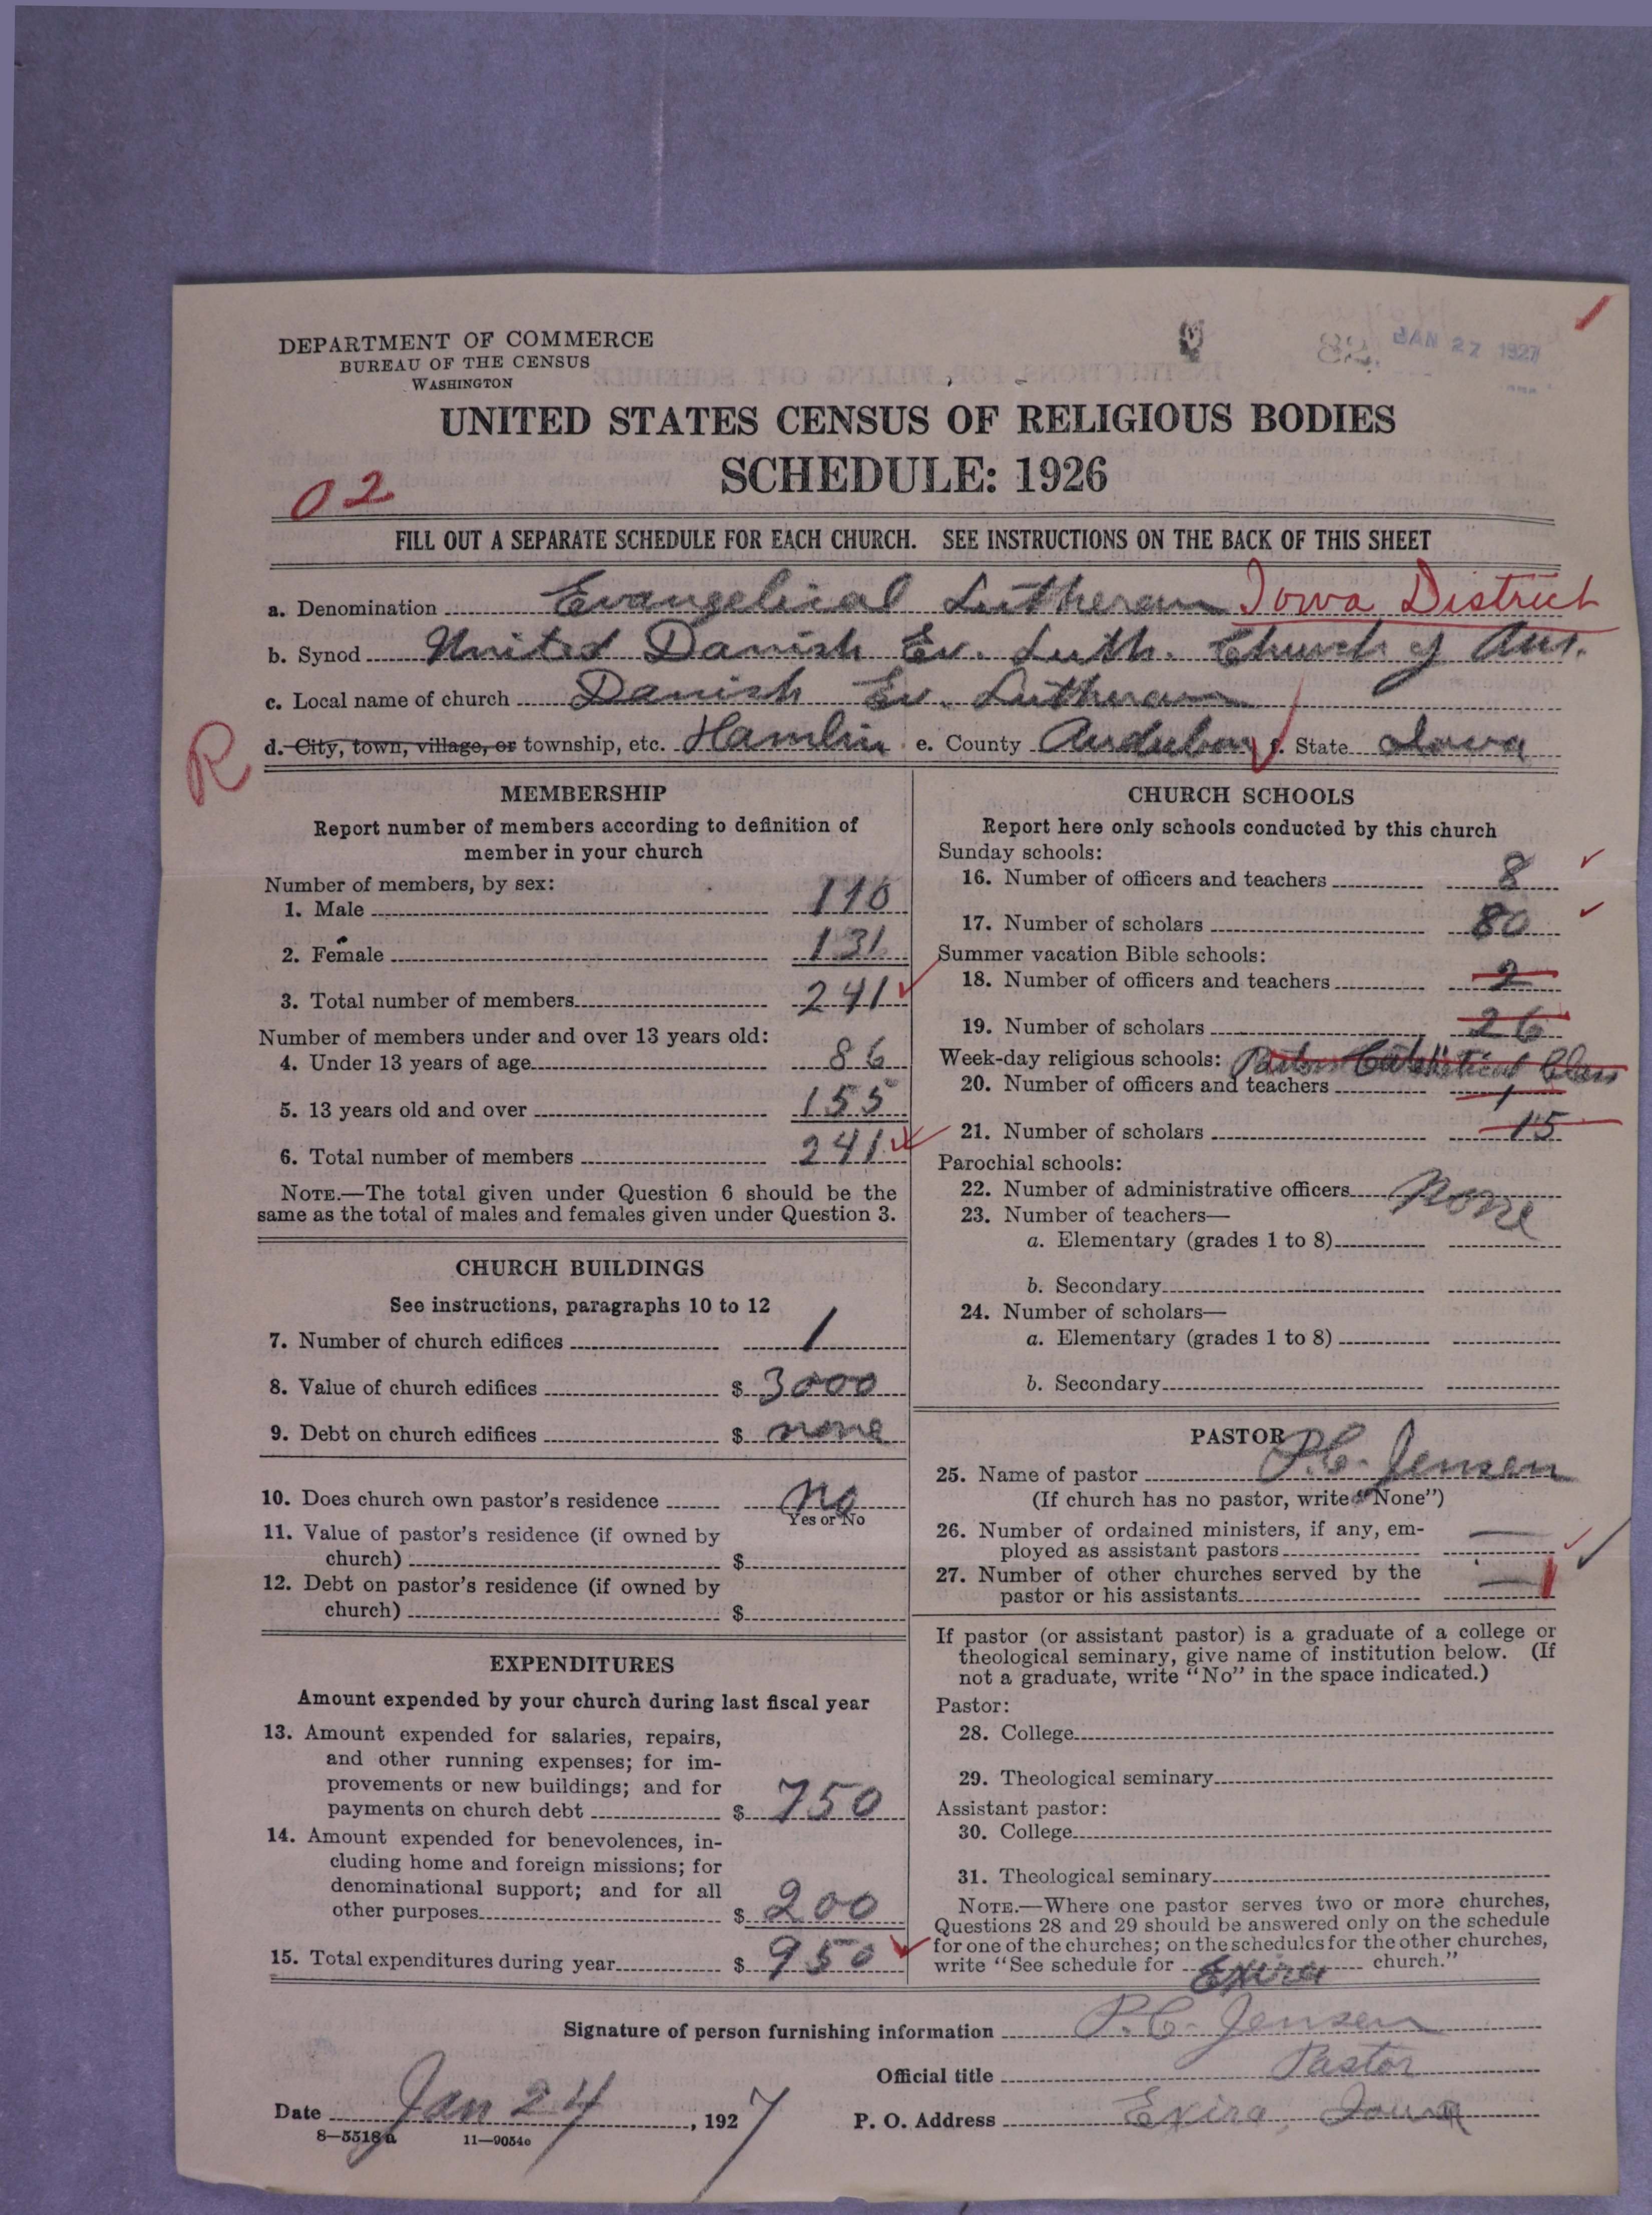 DEPARTMENT OF COMMERCE
BUREAU OF THE CENSUS
WASHINGTON
JAN 27 1927
UNITED STATES CENSUS OF RELIGIOUS BODIES
SCHEDULE: 1926
02
FILL OUT A SEPARATE SCHEDULE FOR EACH CHURCH. SEE INSTRUCTIONS ON THE BACK OF THIS SHEET
a. Denomination Evangelical Lutheran Iowa District
b. Synod United Danish Ev. Luth. Church of Am.
c. Local name of church Danish Ev. Lutheran
R
d. City, town, village, or township, etc. Hamlin e. County Audubon f. State Iowa
MEMBERSHIP
Report number of members according to definition of
member in your church
Number of members, by sex:
1. Male 110
2. Female 131
3. Total number of members 241
Number of members under and over 13 years old:
4. Under 13 years of age 86
5. 13 years old and over 155
6. Total number of members 241
NOTE.—The total given under Question 6 should be the
same as the total of males and females given under Question 3.
CHURCH BUILDINGS
See instructions, paragraphs 10 to 12
7. Number of church edifices 1
8. Value of church edifices $ 3000
9. Debt on church edifices $ none
10. Does church own pastor's residence No
Yes or No
11. Value of pastor's residence (if owned by
church) $
12. Debt on pastor's residence (if owned by
church) $
EXPENDITURES
Amount expended by your church during last fiscal year
13. Amount expended for salaries, repairs,
and other running expenses; for im-
provements or new buildings; and for
payments on church debt $ 750
14. Amount expended for benevolences, in-
cluding home and foreign missions; for
denominational support; and for all
other purposes $ 200
15. Total expenditures during year $ 950
CHURCH SCHOOLS
Report here only schools conducted by this church
Sunday schools:
16. Number of officers and teachers 8
17. Number of scholars 80
Summer vacation Bible schools:
18. Number of officers and teachers 2
19. Number of scholars 26
Week-day religious schools: Class
20. Number of officers and teachers 1
21. Number of scholars 15
Parochial schools:
22. Number of administrative officers None
23. Number of teachers—
a. Elementary (grades 1 to 8)
b. Secondary
24. Number of scholars—
a. Elementary (grades 1 to 8)
b. Secondary
PASTOR
25. Name of pastor P.C. Jensen
(If church has no pastor, write "None")
26. Number of ordained ministers, if any, em-
ployed as assistant pastors —
27. Number of other churches served by the
pastor or his assistants — 1
If pastor (or assistant pastor) is a graduate of a college or
theological seminary, give name of institution below. (If
not a graduate, write "No" in the space indicated.)
Pastor:
28. College
29. Theological seminary
Assistant pastor:
30. College
31. Theological seminary
NOTE.—Where one pastor serves two or more churches,
Questions 28 and 29 should be answered only on the schedule
for one of the churches; on the schedules for the other churches,
write "See schedule for Exira church."
Signature of person furnishing information P.C. Jensen
Official title Pastor
Date Jan 24, 1927
P. O. Address Exira, Iowa
8—5518a
11—9054e